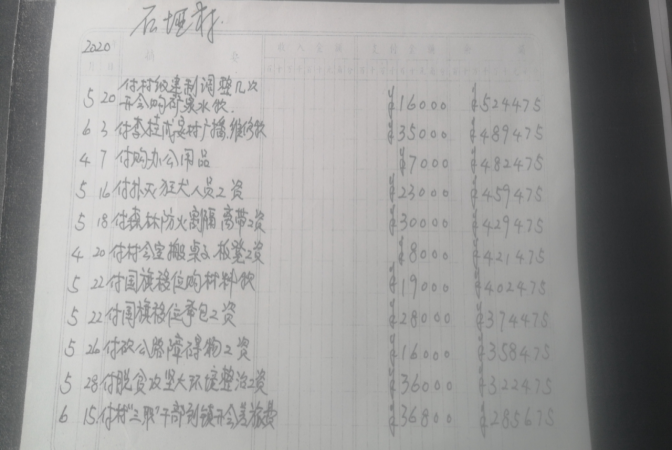 石垭村
2020
5 20 付村级建制调整几次
开会购矿泉水款. ¥16000 ¥524475
6 3 付李桂成吴村广播维修款 ¥35000 ¥489475
4 7 付购办公用品 ¥7000 ¥482475
5 16 付扑灭狂犬人员工资 ¥23000 ¥459475
5 18 付森林防火割隔离带工资 ¥30000 ¥429475
4 20 付村会室搬桌子板凳工资 ¥8000 ¥421475
5 22 付国旗移位购材料款 ¥19000 ¥402475
5 22 付国旗移位承包工资 ¥28000 ¥374475
5 26 付砍公路障碍物工资 ¥16000 ¥358475
5 28 付脱贫攻坚大环境整治工资 ¥36000 ¥322475
6 15 付村"三职"干部到镇开会差旅费 ¥36800 ¥285675